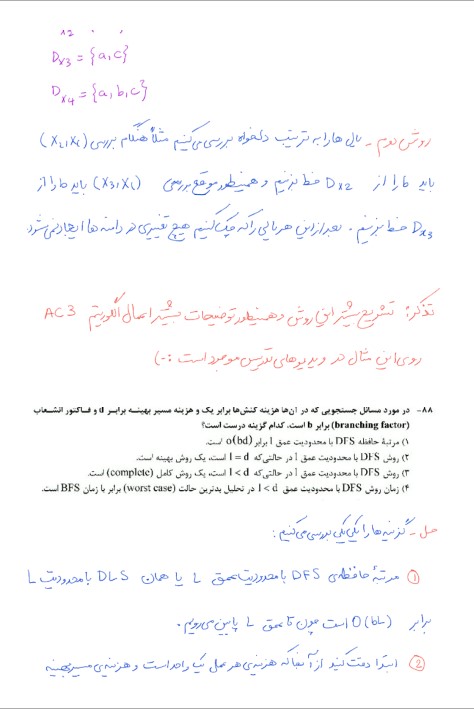 D x3 = {a,c}
D x4 = {a,b,c}
روش دوم - یال ها را به ترتیب دلخواه بررسی می‌کنیم مثلاً هنگام بررسی (x2,x4)
باید a را از D x2 خط بزنیم و همینطور موقع بررسی (x3,x4) باید a را از
D x3 خط بزنیم. بعد از این هر یالی را که چک کنیم هیچ تغییری در دامنه ها ایجاد نمی‌شود.
تذکر: تشریح بیشتر این روش و همینطور توضیحات بیشتر اعمال الگوریتم AC3
روی این مثال در ویدیوهای تدریس موجود است :-)
۸۸- در مورد مسائل جستجویی که در آن‌ها هزینه کنش‌ها برابر یک و هزینه مسیر بهینه برابر d و فاکتور انشعاب
(branching factor) برابر b است، کدام گزینه درست است؟
۱) مرتبهٔ حافظه DFS با محدودیت عمق l برابر o(bd) است.
۲) روش DFS با محدودیت عمق l در حالتی‌که l = d است، یک روش بهینه است.
۳) روش DFS با محدودیت عمق l در حالتی‌که l < d است، یک روش کامل (complete) است.
۴) زمان روش DFS با محدودیت عمق l < d در تحلیل بدترین حالت (worst case) برابر با زمان BFS است.
حل - گزینه ها را یکی یکی بررسی می‌کنیم:
① مرتبهٔ حافظه‌ی DFS با محدودیت عمق L یا همان DLS با محدودیت L
برابر O(bL) است چون تا عمق L پایین می‌رویم.
② ابتدا دقت کنید از آنجا که هزینه‌ی هر عمل یک واحد است و هزینه‌ی مسیر بهینه